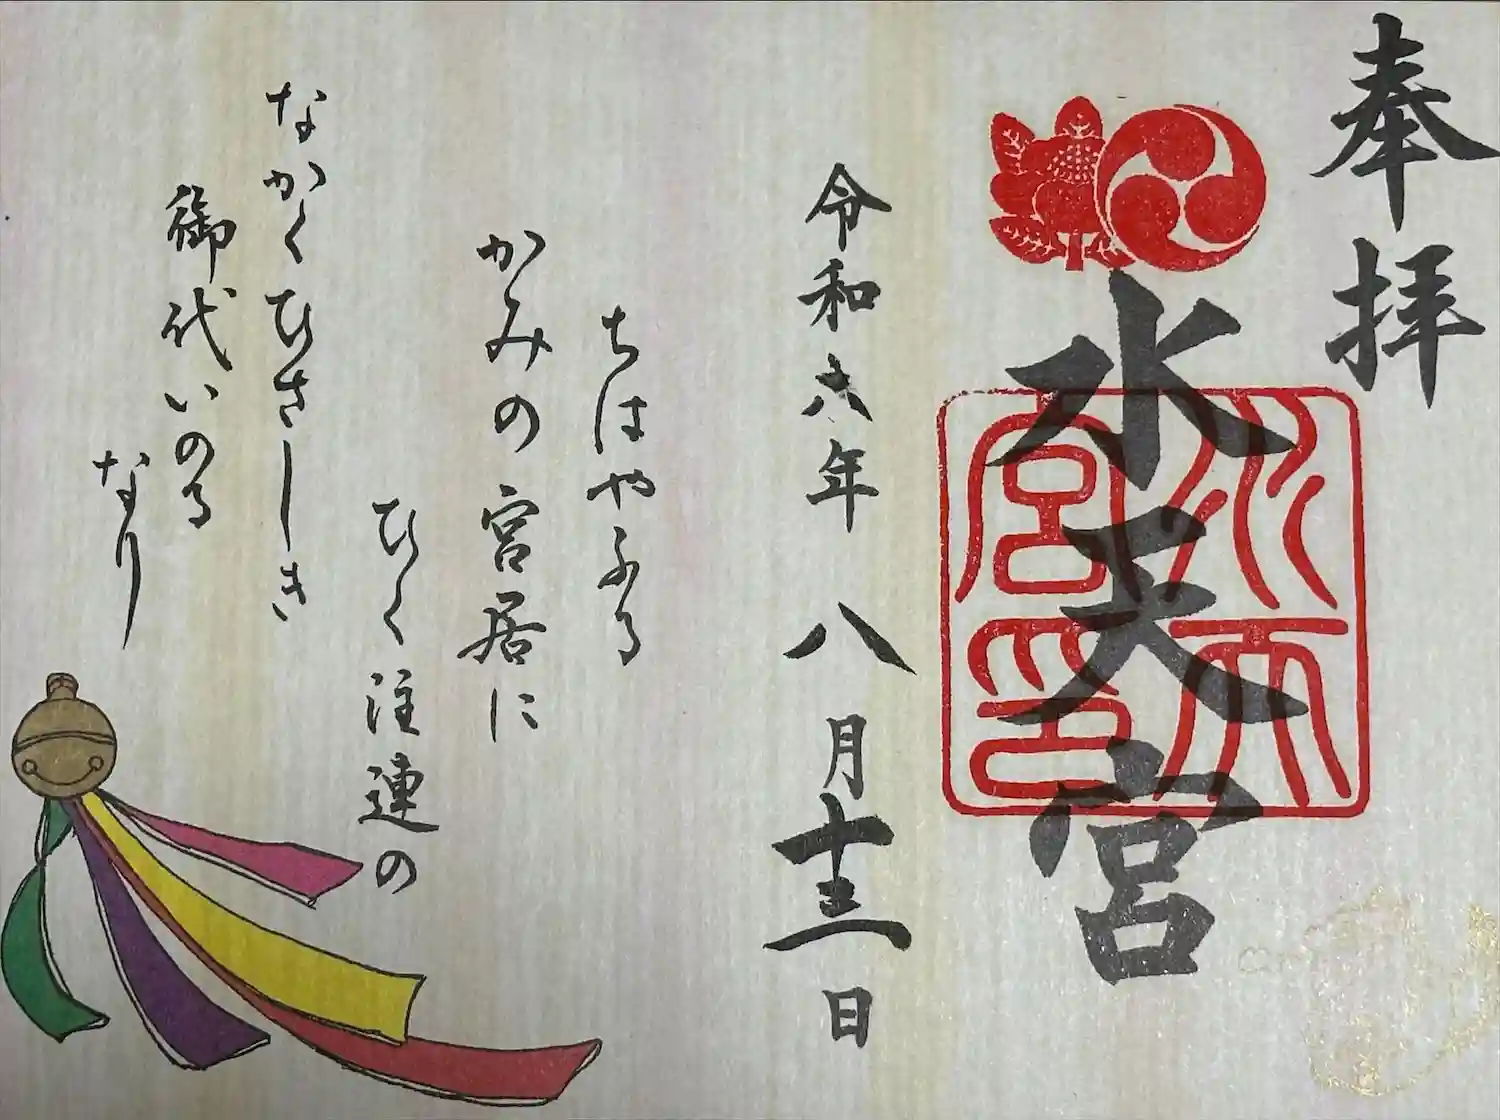 奉拝
水天宮
水天宮印
令和六年八月十三日
ちはやふる
かみの宮居に
ひく注連の
なかくひさしき
御代いのる
なり